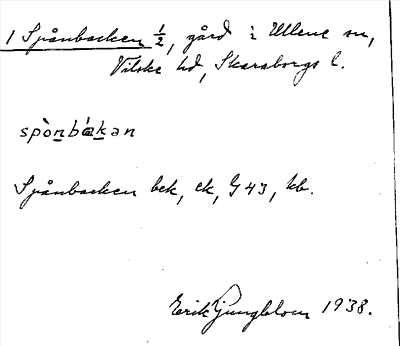 1 Spånbacken 1/2, gård i Ullene sn,
Vilske hd, Skaraborgs l.
spònbákan
Spånbacken bek, ek, G 43, kb.
Erik Ljungblom 1938.